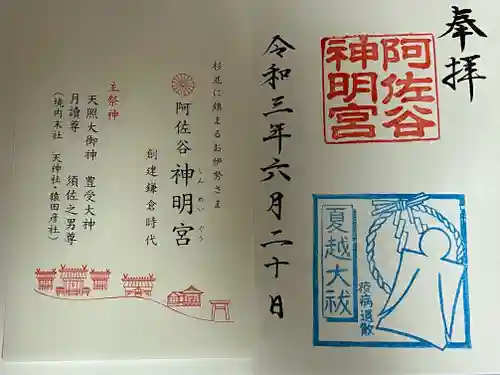 奉拝
阿佐谷
神明宮
令和三年六月二十日
夏越大祓
疫病退散
杉並に鎮まるお伊勢さま
阿佐谷神明宮
しんめいぐう
創建鎌倉時代
主祭神
天照大御神 豊受大神
月讀尊 須佐之男尊
(境内末社 天神社・猿田彦社)